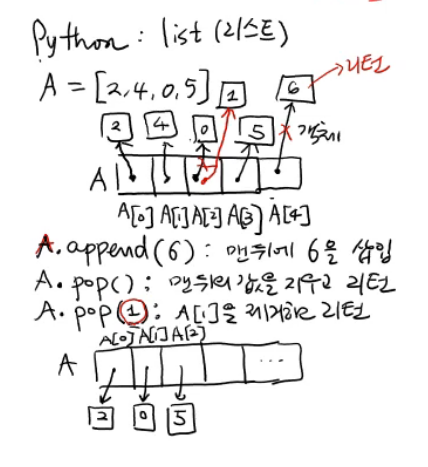 Python : list (리스트)
A = [2,4,0,5] 1 6 → 리턴
2 4 0 5 객체
A
A[0] A[1] A[2] A[3] A[4]
A.append(6) : 맨뒤에 6을 삽입
A.pop() : 맨뒤의 값을 지우고 리턴
A.pop(1) : A[1]을 제거하고 리턴
A[0] A[1] A[2]
A ...
2 0 5